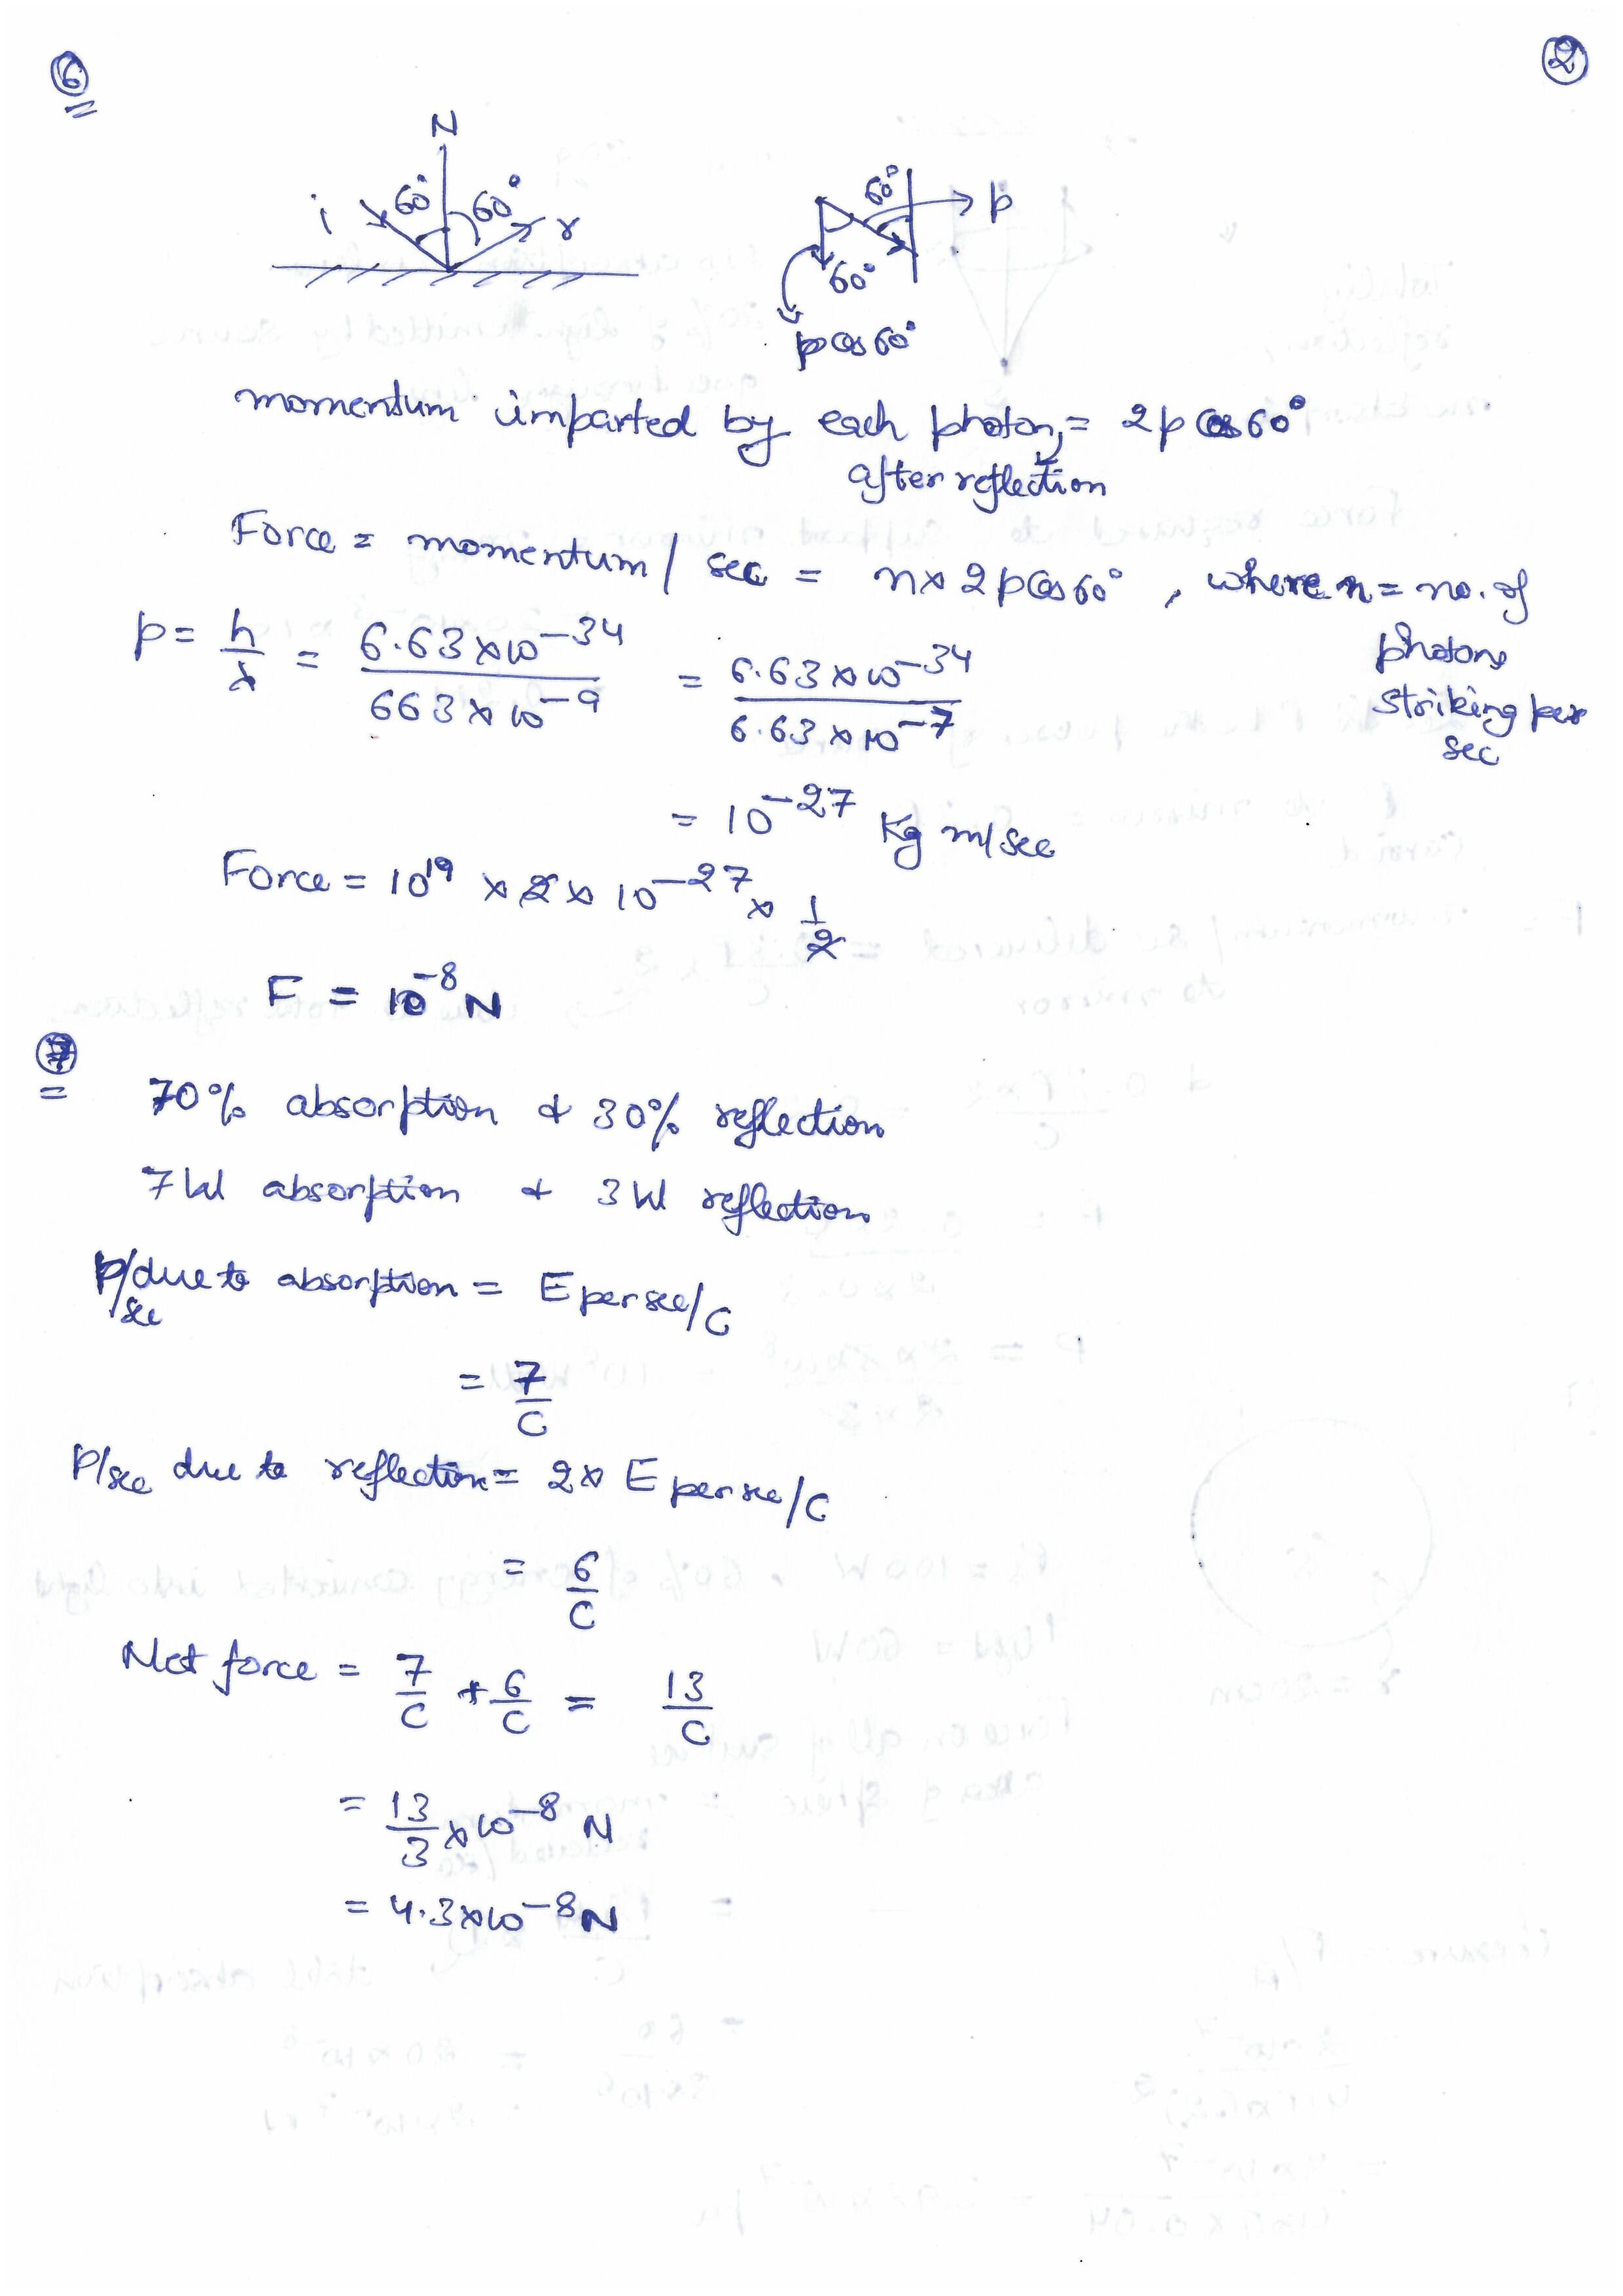 6
2
N
i 60° 60° r
60° p
60°
p cos 60°
momentum imparted by each photon = 2p cos 60°
after reflection
Force = momentum / sec = n x 2p cos 60° , where n = no. of
photons
striking per
sec
p = h/λ = 6.63 x 10^-34 / 663 x 10^-9 = 6.63 x 10^-34 / 6.63 x 10^-7
= 10^-27 Kg m/sec
Force = 10^19 x 2 x 10^-27 x 1/2
F = 10^-8 N
7
70% absorption & 30% reflection
7W absorption & 3W reflection
P/sec due to absorption = E per sec/C
= 7/C
P/sec due to reflection = 2 x E per sec/C
= 6/C
Net force = 7/C + 6/C = 13/C
= 13/3 x 10^-8 N
= 4.3 x 10^-8 N